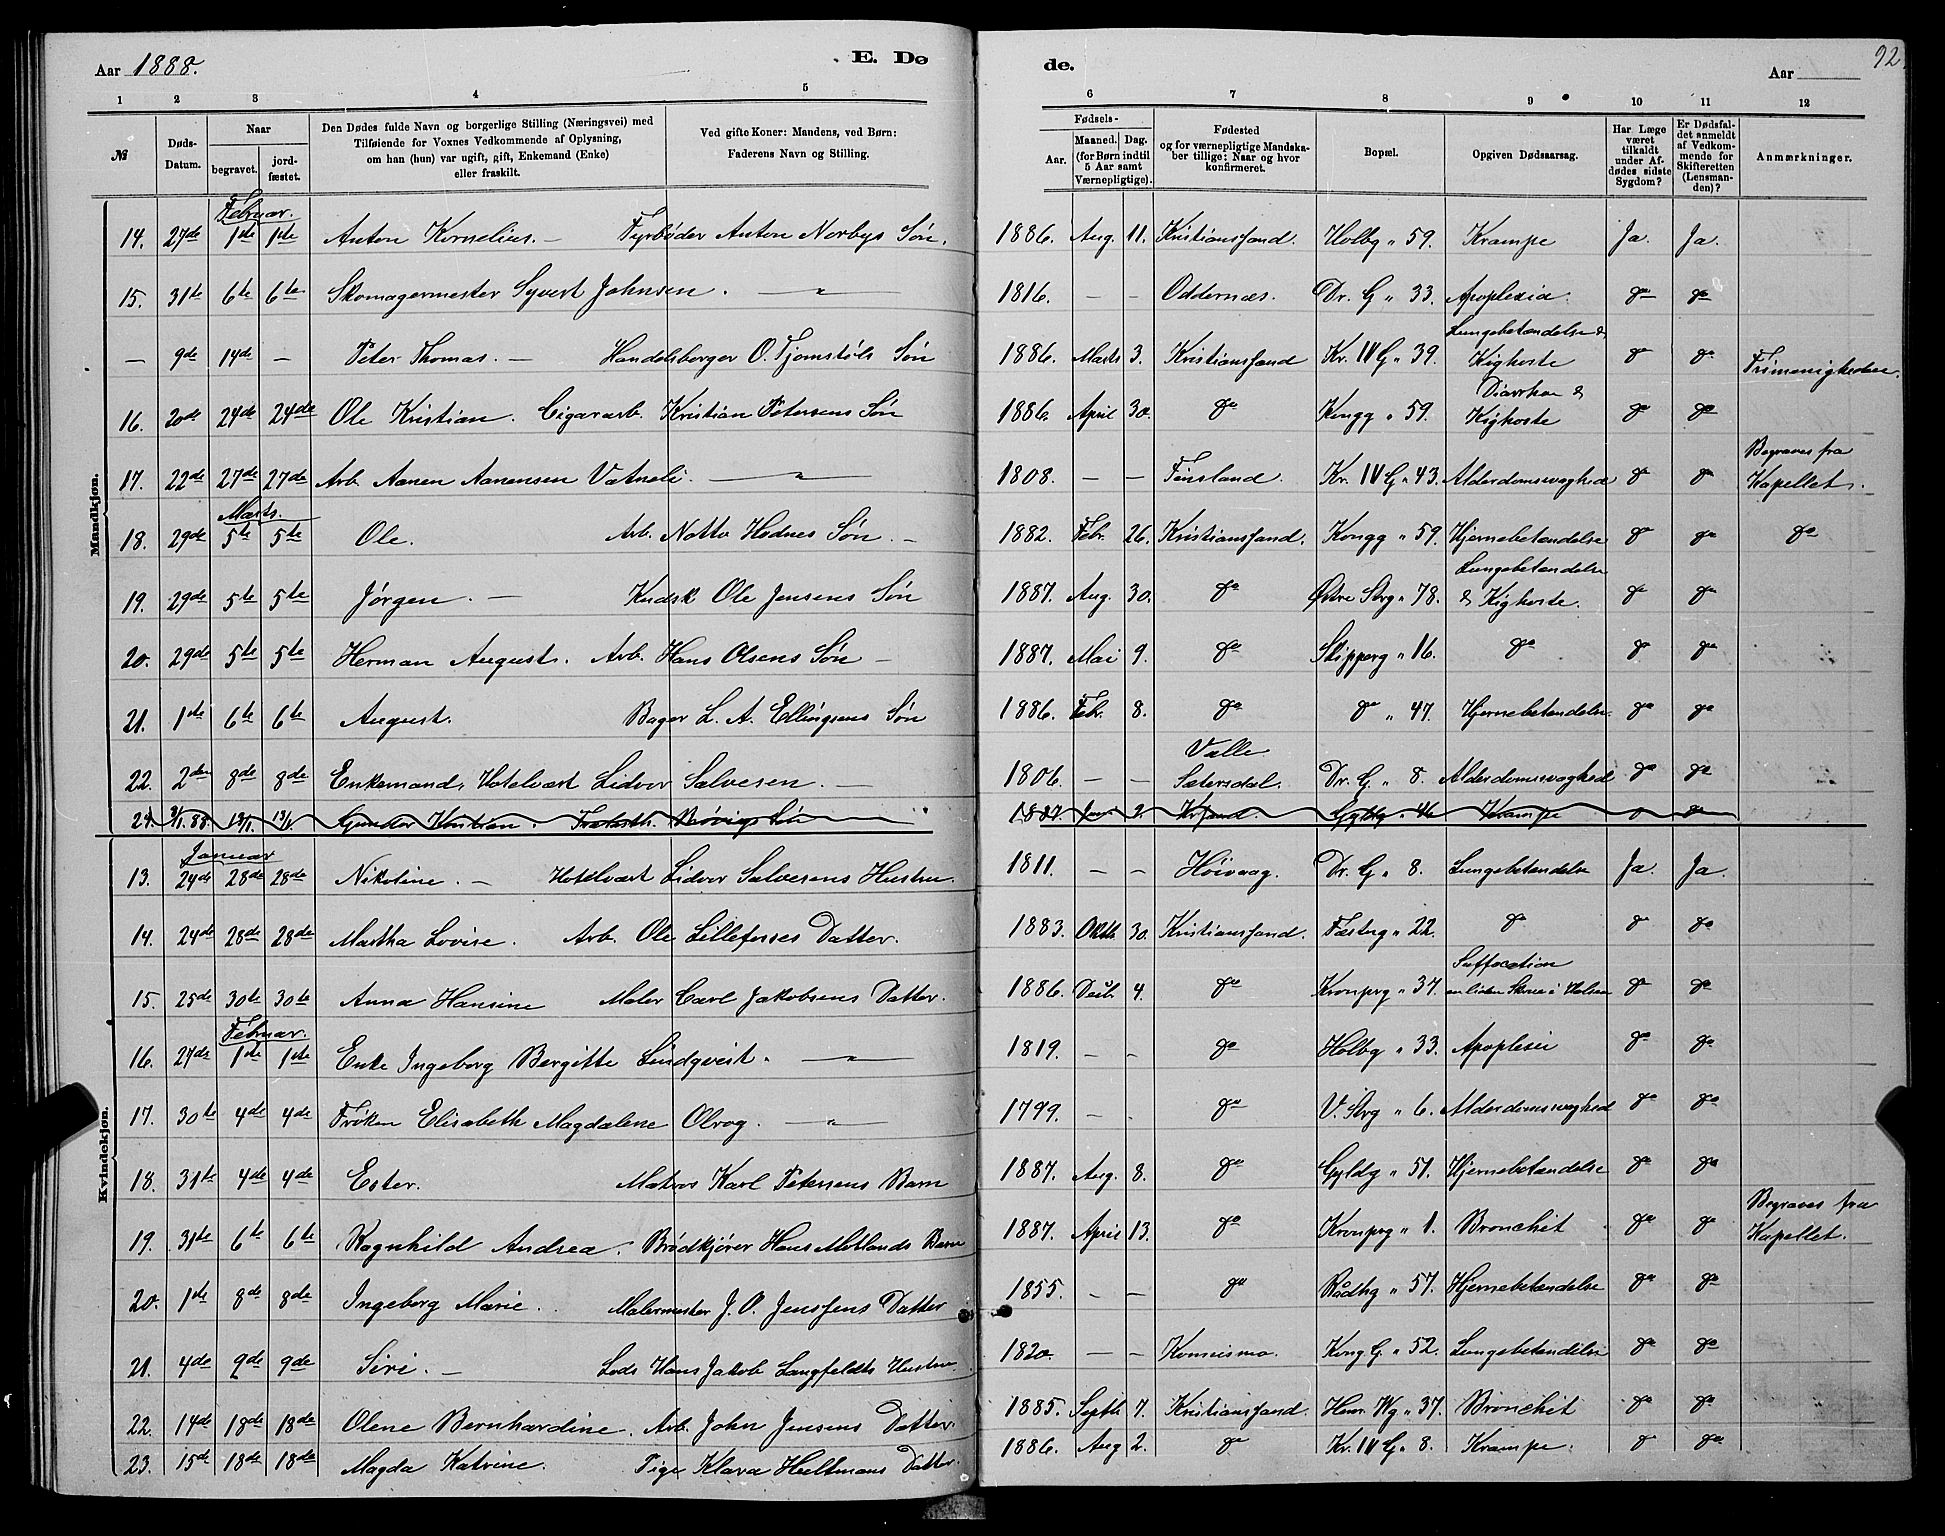 Aar 1888. E. Dø de. Aar 92.
1 2 3 4 5 6 7 8 9 10 11 12
№ Døds-Datum. Naar begravet. jord-fæstet. Den Dødes fulde Navn og borgerlige Stilling (Næringsvei) med Tilføiende for Voxnes Vedkommende af Oplysning, om han (hun) var ugift, gift, Enkemand (Enke) eller fraskilt. Ved gifte Koner: Mandens, ved Børn: Faderens Navn og Stilling. Fødsels- Aar. Maaned. Dag. (for Børn indtil 5 Aar samt Værnepligtige). Fødested og for værnepligtige Mandska-ber tillige: Naar og hvor konfirmeret. Bopæl. Opgiven Dødsaarsag. Har Læge været tilkaldt under Af-dødes sidste Sygdom? Er Dødsfal-det anmeldt af Vedkom-mende for Skifteretten (Lensman-den)? Anmærkninger.
Mandkjøn.
Februar.
14. 27de 1ste 1ste Anton Kornelius. — Fyrbøder Anton Norbys Søn. 1886. Aug. 11. Kristianssand. Holbg " 59. Krampe Ja. Ja.
15. 31te 6te 6te Skomagermester Syvert Johnsen. — " — 1816. — — Oddernæs. Dr. G " 33. Apoplexia. do do
— 9de 14de — Peter Thomas. — Handelsborger O. Tjomstøls Søn 1886. Marts 3. Kristianssand Kr. IV G " 39. Lungebetændelse & Kighoste do do Frimenigheden.
16. 20de 24de 24de Ole Kristian. Cigararb. Kristian Petersens Søn 1886. April 30. do Kongg " 59. Diarrhoe & Kighoste do do
17. 22de 27de 27de Arb. Aanen Aanensen Vatneli. — " — 1808. — — Finsland. Kr. IV G " 43. Alderdomssvaghed do do Begraves fra Kapellet.
Marts.
18. 29de 5te 5te Ole. Arb. Notto Hodnes Søn. — 1882. Febr. 26. Kristianssand. Kongg " 59. Hjernebetændelse do do do
19. 29de 5te 5te Jørgen. — Kudsk Ole Jensens Søn 1887. Aug. 30. do Østre Strg " 78. Lungebetændelse & Kighoste. do do
20. 29de 5te 5te Herman August. Arb. Hans Olsens Søn — 1887. Mai 9. do Skipperg " 16. do do do
21. 1ste 6te 6te August. Bager L. A. Ellingsens Søn 1886. Febr. 8. do do " 47. Hjernebetændelse. do do
22. 2den 8de 8de Enkemand, Hotelvært Lidvor Salvesen. — 1806. — — Valle Sætersdal. Dr. G. " 8. Alderdomssvaghed do do
3/1. 88. 13/1. 13/1. Kristian. Krampe
Kvindekjøn.
Januar
13. 24de 28de 28de Nikoline. — Hotelvært Lidvor Salvesens Hustru. 1811. — — Høivaag. Dr. G " 8. Lungebetændelse Ja. Ja.
14. 24de 28de 28de Martha Lovise. Arb. Ole Lillefosses Datter. 1883. Oktb. 30. Kristianssand. Fæstng " 22. do do do
15. 25de 30te 30te Anna Hansine Maler Carl Jakobsens Datter. 1886. Decb. 4. do Kronprg " 37. Suffocation en liden Skrue i Halsen do do
Februar.
16. 27de 1ste 1ste Enke Ingeborg Bergitte Lindqveist. — " — 1819. — — do Holbg " 33. Apoplexi do do
17. 30te 4de 4de Frøken Elisabeth Magdalene Olrog. — " — 1799. — — do V. Strg " 6. Alderdomssvaghed do do
18. 31te 4de 4de Ester. Matros Karl Petersens Barn 1887. Aug. 8. do Gyldg " 51. Hjernebetændelse do do
19. 31te 6te 6te Ragnhild Andrea. Brødkjører Hans Motlands Barn 1887. April 13. do Kronprg " 1. Bronchit do do Begraves fra Kapellet.
20. 1ste 8de 8de Ingeborg Marie. Malermester J. O. Jenssens Datter 1855. — — do Rådhg " 57. Hjernebetændelse do do
21. 4de 9de 9de Siri. — Lods Hans Jakob Langfeldts Hustru 1820. — — Konnismo. Kong G. " 52. Lungebetændelse do do
22. 14de 18de 18de Olene Bernhardine. Arb. John Jensens Datter. 1885. Septb. 7. Kristianssand. Henr. Wg " 37. Bronchit do do
23. 15de 18de 18de Magda Katrine. Pige Klara Heltmans Datter. 1886. Aug 2. do Kr. IV G " 8. Krampe. do do